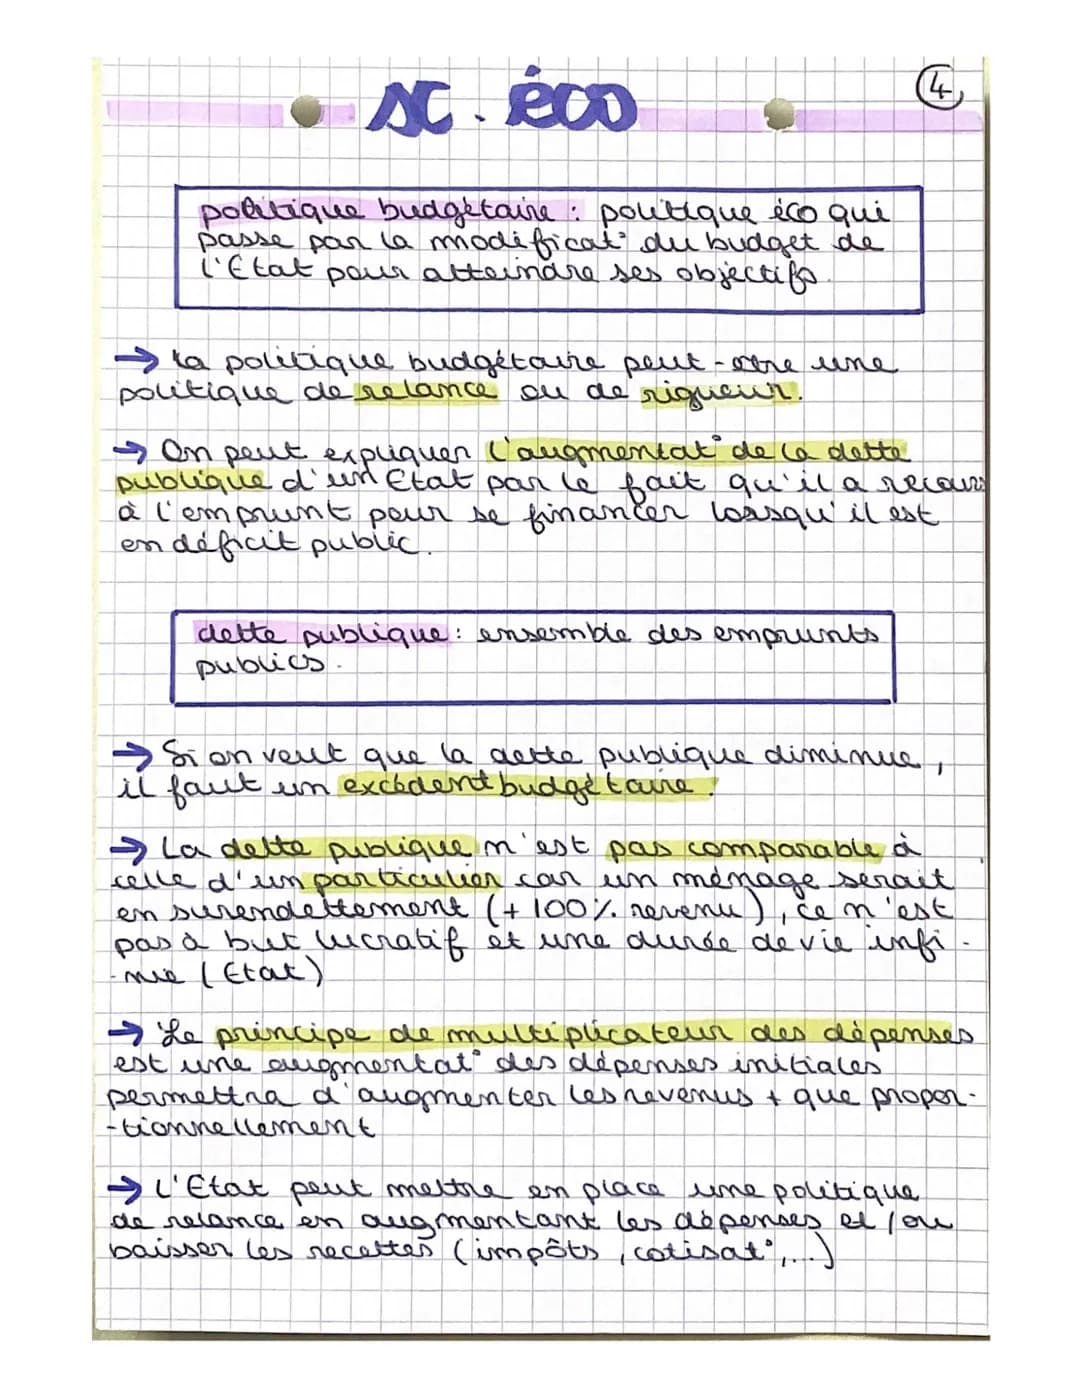 sc. éco
4
politique budgétaire : politique éco qui
passe par la modificat° du budget de
l'Etat pour atteindre ses objectifs.
→ La politique budgétaire peut-être une
politique de relance ou de rigueur.
→ On peut expliquer l'augmentat° de la dette
publique d'un Etat par le fait qu'il a recours
à l'emprunt pour se financer lorsqu'il est
en déficit public.
dette publique : ensemble des emprunts
publics.
→ Si on veut que la dette publique diminue,
il faut un excédent budgétaire.
→ La dette publique n'est pas comparable à
celle d'un particulier car un ménage serait
en surendettement (+ 100% revenu), ce n'est
pas à but lucratif et une durée de vie infi-
-nie (Etat)
→ Le principe de multiplicateur des dépenses
est une augmentat° des dépenses initiales
permettra d'augmenter les revenus + que propor-
-tionnellement
→ L'Etat peut mettre en place une politique
de relance en augmentant les dépenses et /ou
baisser les recettes (impôts, cotisat°,...)